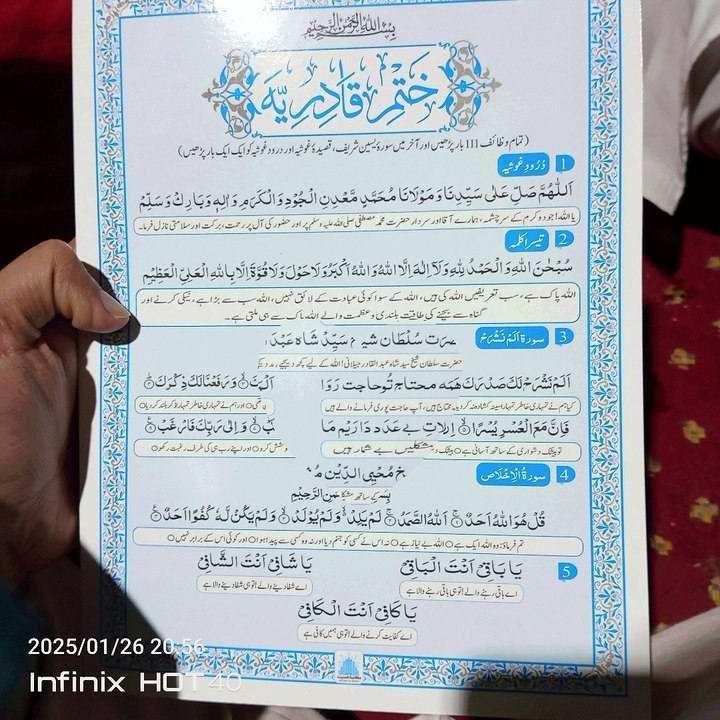 بسم الله الرحمن الرحيم
ختم قادریہ
(تمام وظائف 111 بار پڑھیں اور آخر میں سورہ یسین شریف، قصیدۂ غوثیہ اور درود غوثیہ کو ایک ایک بار پڑھیں)
1 دُرُودِ غوثیہ
اَللّٰهُمَّ صَلِّ عَلٰى سَيِّدِنَا وَمَوْلَانَا مُحَمَّدٍ مَّعْدِنِ الْجُوْدِ وَالْكَرَمِ وَاٰلِهٖ وَبَارِكْ وَسَلِّمْ
یا اللہ! جود و کرم کے سرچشمہ، ہمارے آقا اور سردار حضرت محمد مصطفی صلی اللہ علیہ وسلم پر اور حضور کی آل پر رحمت، برکت اور سلامتی نازل فرما۔
2 تیسرا کلمہ
سُبْحٰنَ اللهِ وَالْحَمْدُ لِلّٰهِ وَلَآ اِلٰهَ اِلَّا اللهُ وَاللهُ اَكْبَرُ وَلَا حَوْلَ وَلَا قُوَّةَ اِلَّا بِاللهِ الْعَلِيِّ الْعَظِيْمِ
اللہ پاک ہے، سب تعریفیں اللہ کی ہیں، اللہ کے سوا کوئی عبادت کے لائق نہیں، اللہ سب سے بڑا ہے، نیکی کرنے اور
گناہ سے بچنے کی طاقت بلندی و عظمت والے اللہ پاک سے ہی ملتی ہے۔
3 سورۃ اَلَمْ نَشْرَحْ
رت سُلْطَان سَيِّدْ شَاه عَبْدَا
حضرت سلطان شیخ سید شاہ عبدالقادر جیلانی! اللہ کے لیے کچھ دیجیے، مدد
اَلَمْ نَشْرَحْ لَكَ صَدْرَكَ هَمه محتاج تُو حاجت رَوَا
وَرَفَعْنَا لَكَ ذِكْرَكَ
کیا ہم نے تمہاری خاطر تمہارا سینہ کشادہ نہ کر دیا۔ محتاج ہیں، آپ حاجت پوری فرمانے والے ہیں
اور ہم نے تمہاری خاطر تمہارا ذکر بلند کر دیا
فَاِنَّ مَعَ الْعُسْرِ يُسْرًا بے عَدَد دَارِيْم مَا
وَاِلٰى رَبِّكَ فَارْغَبْ
تو بیشک دشواری کے ساتھ آسانی ہے مشکلیں بے شمار ہیں
اور اپنے رب ہی کی طرف رغبت رکھو
4 سورۃُ الْاِخْلَاص
مُحْيِي الدِّيْن
قُلْ هُوَ اللهُ اَحَدٌ اَللهُ الصَّمَدُ لَمْ يَلِدْ وَلَمْ يُوْلَدْ وَلَمْ يَكُنْ لَّهٗ كُفُوًا اَحَدٌ
تم فرماؤ: وہ اللہ ایک ہے اللہ بے نیاز ہے نہ اس نے کسی کو جنم دیا اور نہ وہ کسی سے پیدا ہوا اور کوئی اس کے برابر نہیں
5
يَا بَاقِيْ اَنْتَ الْبَاقِيْ
يَا شَافِيْ اَنْتَ الشَّافِيْ
اے باقی رہنے والے! تو ہی باقی رہنے والا ہے
اے شفا دینے والے! تو ہی شفا دینے والا ہے
يَا كَافِيْ اَنْتَ الْكَافِيْ
اے کفایت کرنے والے! تو ہی ہمیں کافی ہے
2025/01/26 20:56
Infinix HOT 40